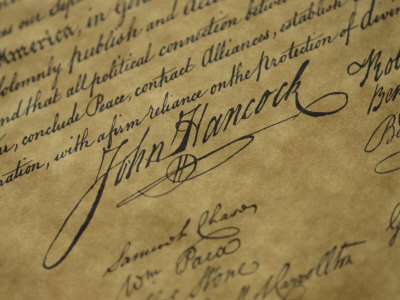 our
America, in Gen
solemnly publish and
and that all political connection between
conclude Peace, contract Alliances, establish
ration, with a firm reliance on the protection of divin
John Hancock
Samuel Chase
Wm Paca
Stone
Carrollton